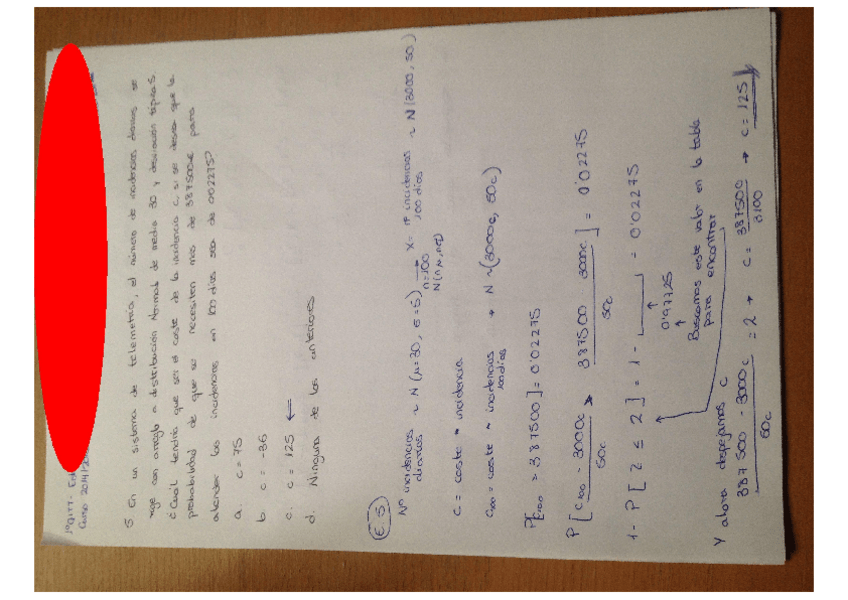 1º GITT-
Curso 2014/20
5 En un sistema de telemetría, el número de incidencias diarias se
rige con arreglo a distribución Normal de media 30 y desviación típica 5.
¿Cuál tendría que ser el coste de la incidencia c, si se desea que la
probabilidad de que se necesiten más de 387500€ para
atender las incidencias en 100 días sea de 0'02275?
a. c = 75
b c = -36
c. c = 125 ←
d. Ninguna de las anteriores
E.5
Nº incidencias diarias ~ N (μ=30, σ=5) → n=100 N(nμ, n σ) X = nº incidencias 100 días ~ N(3000, 50)
c = coste * incidencia
C100 = coste * incidencias 100 días → N ~(3000c, 50c)
P[C100 > 387500] = 0'02275
P [ C100 - 3000c / 50c > 387500 - 3000c / 50c ] = 0'02275
1 - P [ Z ≤ Z ] = 1 - ____ = 0'02275
↑
0'97725
↑
Buscamos este valor en la tabla
para encontrar
Y ahora despejamos c
387500 - 3000c / 50c = 2 → c = 387500 / 3100 → c = 125